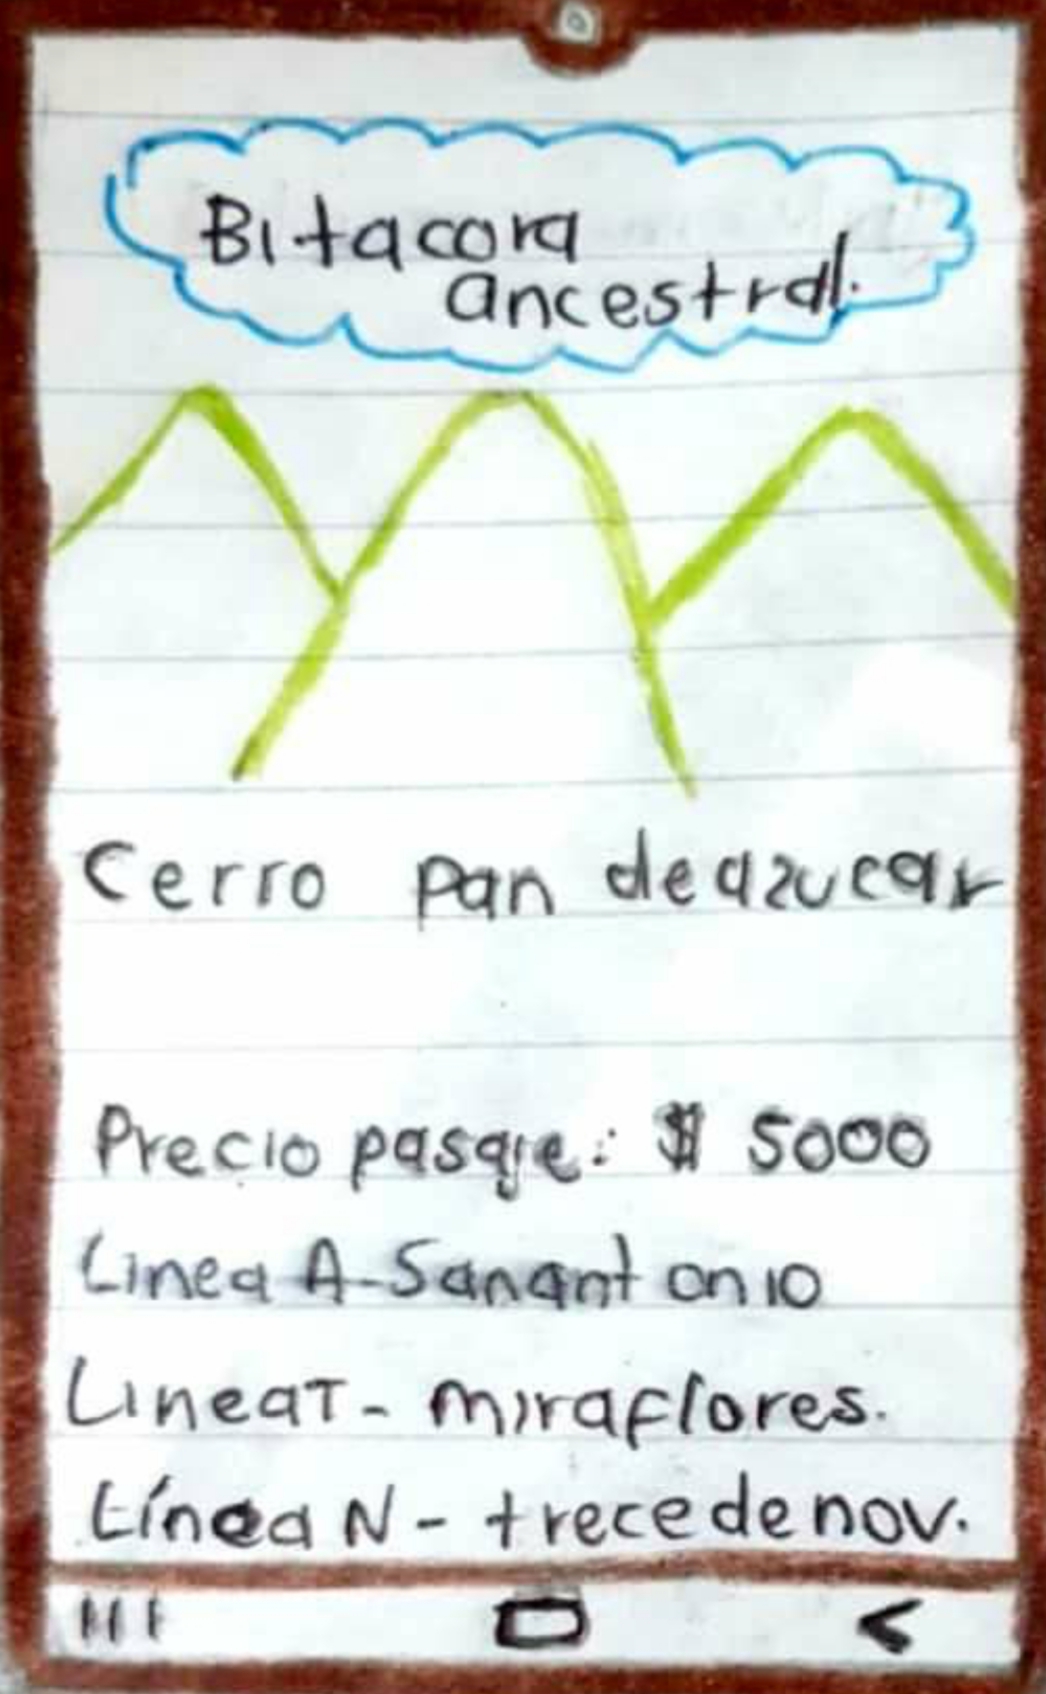 Bitacora
ancestral.
Cerro pan de azucar
Precio pasaje: $ 5000
Linea A-San antonio
Linea T- miraflores.
Línea N - trece de nov.